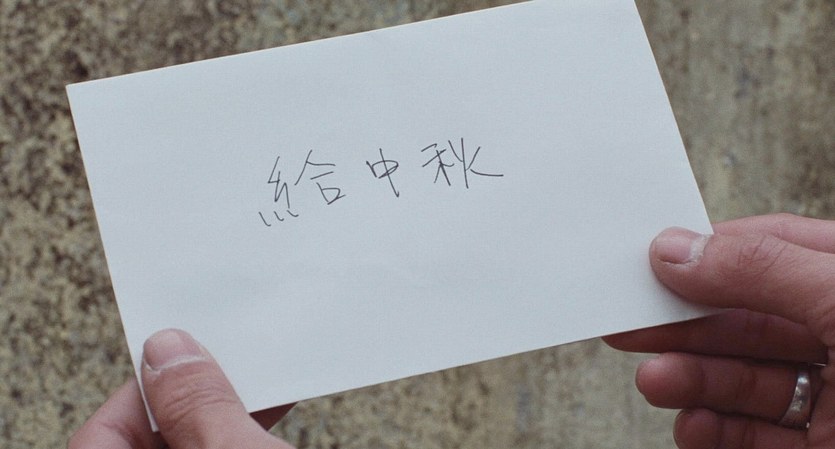 給中秋